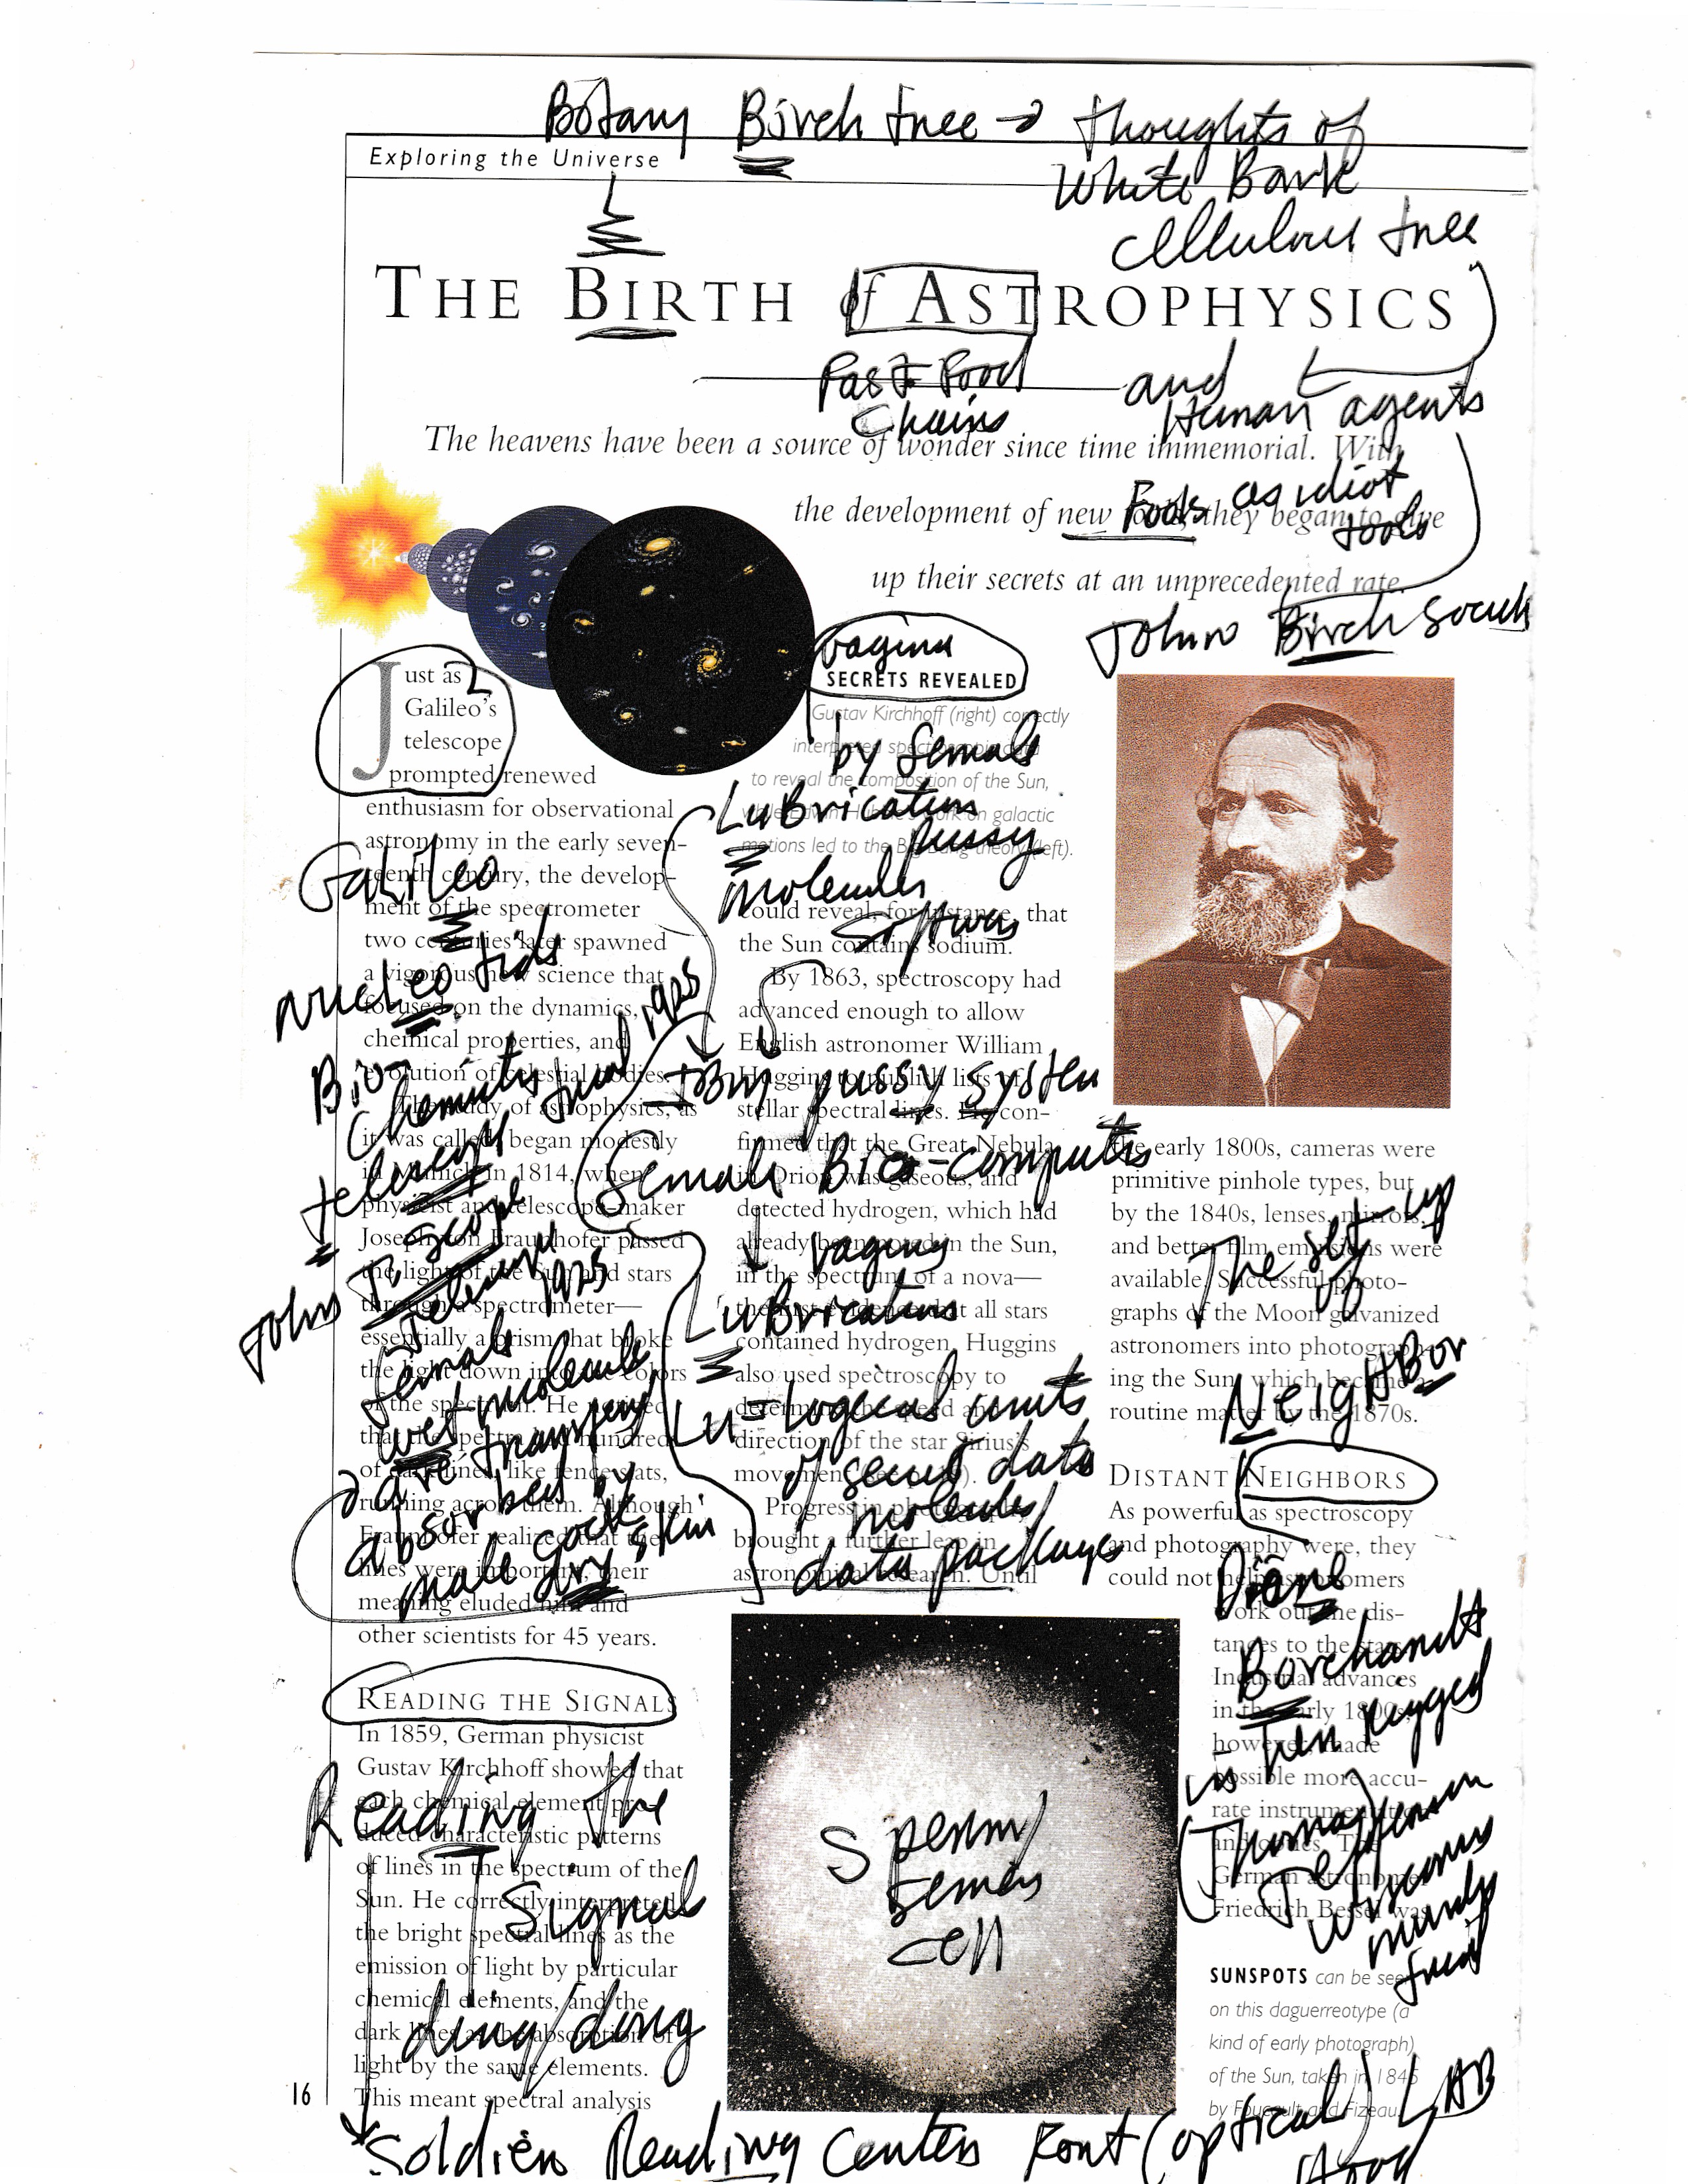 Botany Birch tree → thoughts of
White Bark
cellulous tree
Exploring the Universe
THE BIRTH of ASTROPHYSICS
Fast Food
Chains
and
Human agents
The heavens have been a source of wonder since time immemorial. With
the development of new they began to give
Fools as idiot
tools
up their secrets at an unprecedented rate.
John Birch
vagina
SECRETS REVEALED
Gustav Kirchhoff (right) correctly
interpreted spectroscopic data
to reveal the composition of the Sun,
while Edwin Hubble's work on galactic
motions led to the Big Bang theory (left).
by females
LuBrication
pussy
molecules
software
Just as
Galileo's
telescope
prompted renewed
enthusiasm for observational
astronomy in the early seven-
teenth century, the develop-
ment of the spectrometer
two centuries later spawned
a vigorous new science that
focused on the dynamics,
chemical properties, and
evolution of celestial bodies.
The study of astrophysics, as
it was called, began modestly
in Munich in 1814, when
physicist and telescope-maker
Joseph von Fraunhofer passed
the light of the Sun and stars
through a spectrometer—
essentially a prism that broke
the light down into the colors
of the spectrum. He noticed
that the spectra had hundreds
of dark lines, like fence slats,
running across them. Although
Fraunhofer realized that the
lines were important, their
meaning eluded him and
other scientists for 45 years.
Galileo
Nucleotids
Bio
Chemists trial 1925
John T.
scope
1925
female
wet molecule
data transfer
absorbed by
male cock
dry skin
READING THE SIGNALS
In 1859, German physicist
Gustav Kirchhoff showed that
each chemical element pro-
duced characteristic patterns
of lines in the spectrum of the
Sun. He correctly interpreted
the bright spectral lines as the
emission of light by particular
chemical elements, and the
dark lines as the absorption of
light by the same elements.
This meant spectral analysis
Reading the
Signal
ding/dong
16
could reveal, for instance, that
the Sun contains sodium.
By 1863, spectroscopy had
advanced enough to allow
English astronomer William
Huggins to publish lists of
stellar spectral lines. He con-
firmed that the Great Nebula
in Orion was gaseous, and
detected hydrogen, which had
already been noted in the Sun,
in the spectrum of a nova—
the first evidence that all stars
contained hydrogen. Huggins
also used spectroscopy to
determine the speed and
direction of the star Sirius's
movement
Progress in photography
brought a further leap in
astronomical research. Until
IBM pussy system
female Bio-computers
↓ vagina
LuBrication
Lu = logical units
of secret data
molecules/
data packages
Sperm/
semen
cell
the early 1800s, cameras were
primitive pinhole types, but
by the 1840s, lenses, mirrors,
and better film emulsions were
available. Successful photo-
graphs of the Moon galvanized
astronomers into photograph-
ing the Sun, which became a
routine matter by the 1870s.
The set up
of
NeighBor
DISTANT NEIGHBORS
As powerful as spectroscopy
and photography were, they
could not help astronomers
work out the dis-
tances to the stars.
Industrial advances
in the early 1800s,
however, made
possible more accu-
rate instrumentation
and optics. The
German astronomer
Friedrich Bessel was
Diane
Borchardt
Teen rigged
in
(Thomas)
Jefferson
Wisconsin
murder
trial
SUNSPOTS can be seen
on this daguerreotype (a
kind of early photograph)
of the Sun, taken in 1845
by Foucault and Fizeau.
Soldier Reading Center Font (optical) LAB